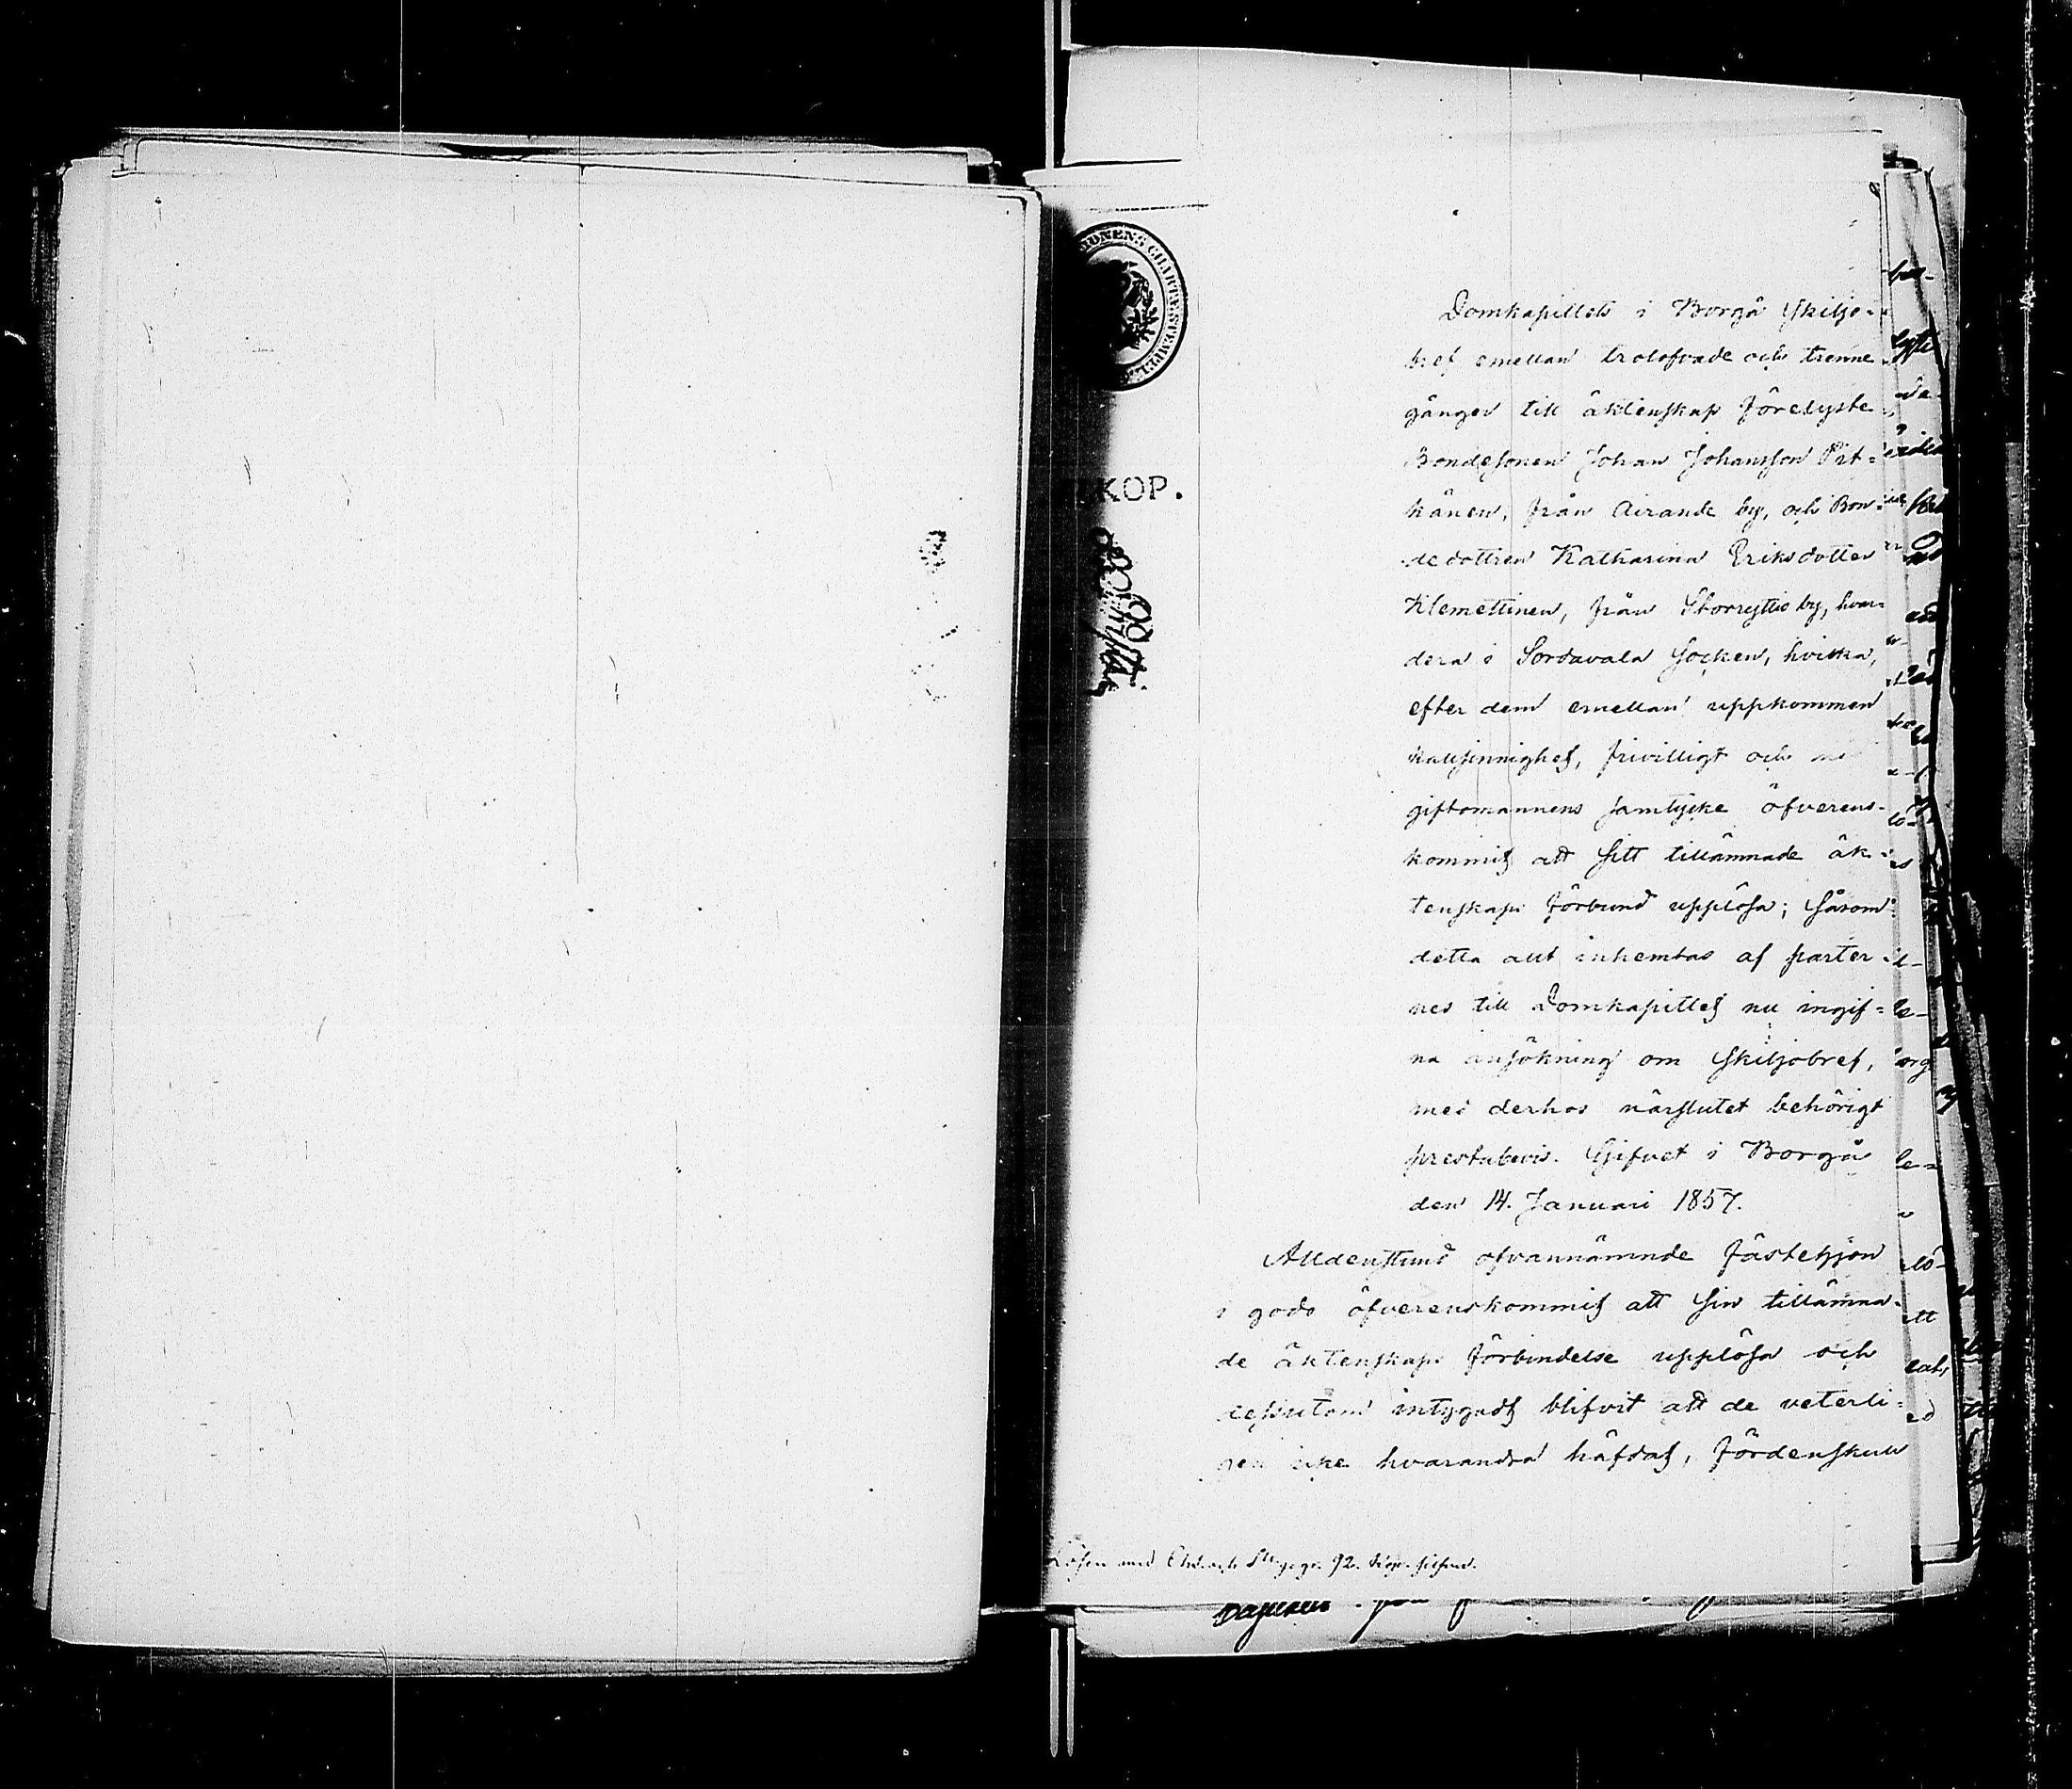 KOP.
Domkapitlets i Borgå Skiljo-
bref emellan trolofvade och trenne
gånger till äktenskap förelyste
Bondesonen Johan Johansson Pit-
känen, från Airande by, och Bon-
dedottren Katharina Eriksdotter
Klemettinen, från Storrytty by, hvar-
dera i Sordavala Socken, hvilka,
efter dem emellan uppkommen
kallsinnighet, frivilligt och med
giftomannens samtycke öfverens-
kommit att sitt tillämnade äk-
tenskaps förbund upplösa; Såsom
detta allt inhemtas af parter-
nes till Domkapitlet nu ingif-
na ansökning om Skiljobref,
med derhos närslutet behörigt
prestabevis. Gifvet i Borgå
den 14. Januari 1857.
Alldenstund ofvannämnde fästehjon
i godo öfverenskommit att sin tillämna-
de äktenskaps förbindelse upplösa och
dessutom intygadt blifvit att de veterli-
gen icke hvarandra häfdat, fördenskull
Lösen med 92. Kop. silfver.